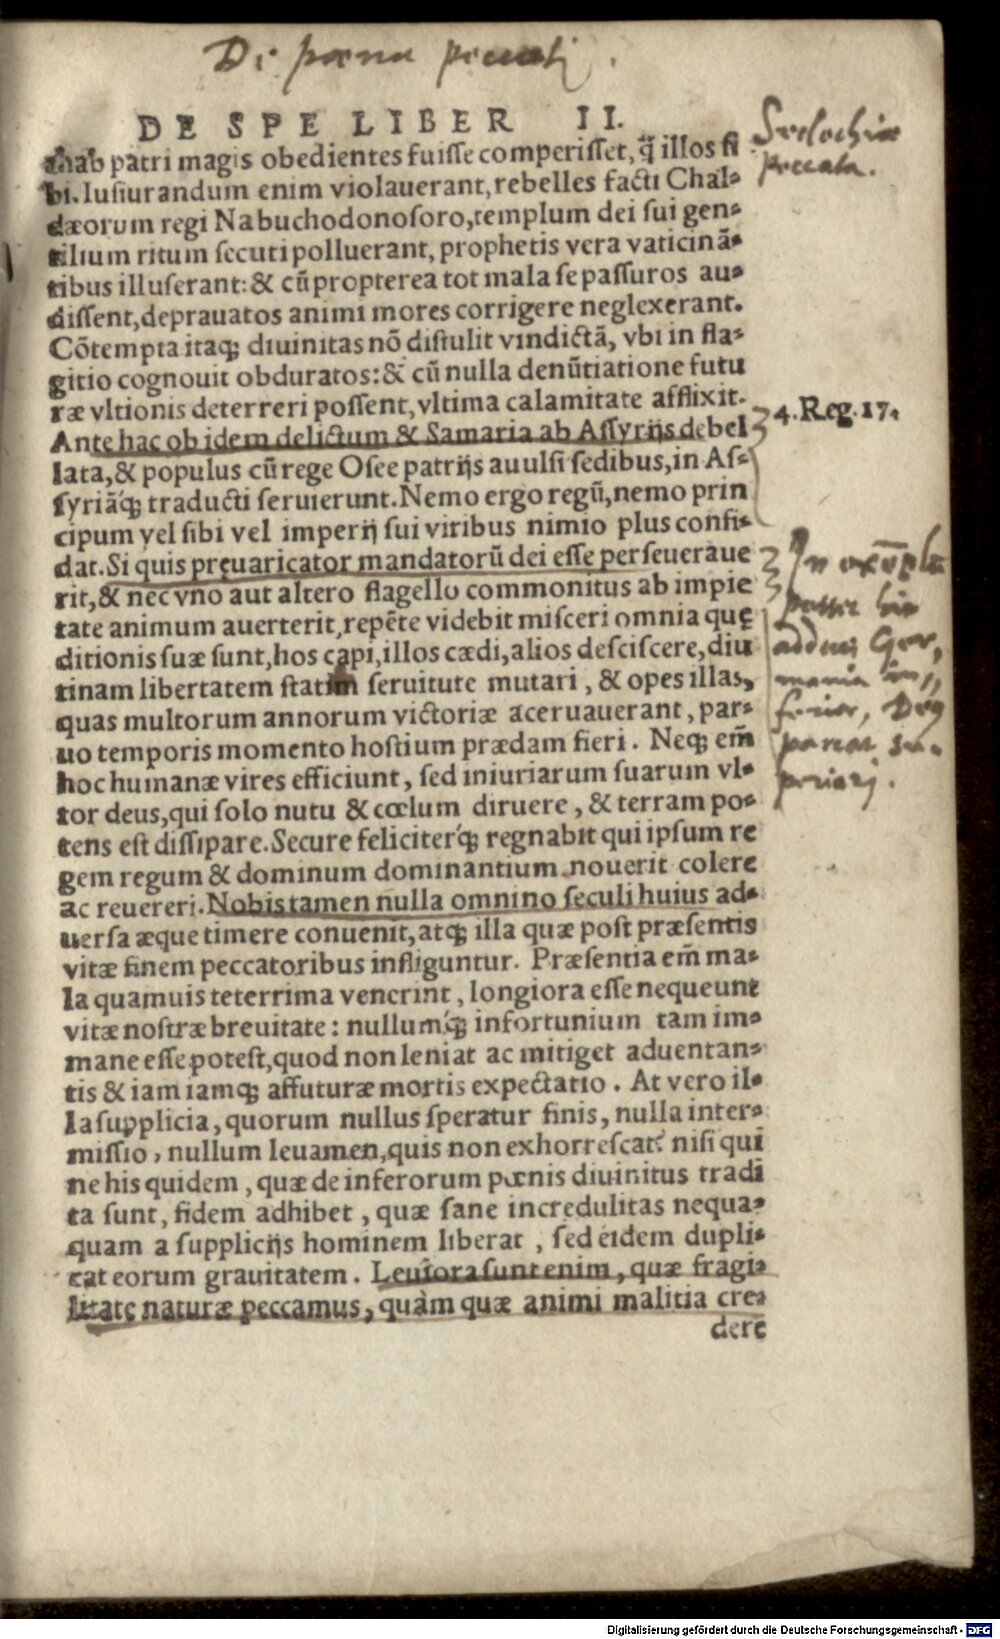 De pœna peccati.
DE SPE LIBER II.
chab patri magis obedientes fuiſſe comperiſſet, q̃ illos ſi
bi. Iuſiurandum enim violauerant, rebelles facti Chal-
dæorum regi Nabuchodonoſoro, templum dei ſui gen-
tilium ritum ſecuti polluerant, prophetis vera vaticinã-
tibus illuſerant: & cũ propterea tot mala ſe paſſuros au-
diſſent, deprauatos animi mores corrigere neglexerant.
Cõtempta itaq; diuinitas nõ diſtulit vindictã, vbi in fla-
gitio cognouit obduratos: & cũ nulla denũtiatione futu
ræ vltionis deterreri poſſent, vltima calamitate afflixit.
Ante hac ob idem delictum & Samaria ab Aſſyrijs debel
lata, & populus cũ rege Oſee patrijs auulſi ſedibus, in Aſ-
ſyriãq́; traducti ſeruierunt. Nemo ergo regũ, nemo prin
cipum vel ſibi vel imperij ſui viribus nimio plus confi-
dat. Si quis pręuaricator mandatorũ dei eſſe perſeueraue
rit, & nec vno aut altero flagello commonitus ab impie
tate animum auerterit, repẽte videbit miſceri omnia quę
ditionis ſuæ ſunt, hos capi, illos cædi, alios deſciſcere, diu
tinam libertatem ſtatim ſeruitute mutari, & opes illas,
quas multorum annorum victoriæ aceruauerant, par-
uo temporis momento hoſtium prædam fieri. Neq; em̃
hoc humanæ vires efficiunt, ſed iniuriarum ſuarum vl-
tor deus, qui ſolo nutu & cœlum diruere, & terram po-
tens eſt diſſipare. Secure feliciterq́; regnabit qui ipſum re
gem regum & dominum dominantium nouerit colere
ac reuereri. Nobis tamen nulla omnino ſeculi huius ad-
uerſa æque timere conuenit, atq; illa quæ poſt præſentis
vitæ finem peccatoribus infliguntur. Præſentia em̃ ma-
la quamuis teterrima venerint, longiora eſſe nequeunt
vitæ noſtræ breuitate: nullumq́; infortunium tam im-
mane eſſe poteſt, quod non leniat ac mitiget aduentan-
tis & iam iamq; affuturæ mortis expectatio. At vero il-
la ſupplicia, quorum nullus ſperatur finis, nulla inter-
miſſio, nullum leuamen, quis non exhorreſcat? niſi qui
ne his quidem, quæ de inferorum pœnis diuinitus tradi
ta ſunt, fidem adhibet, quæ ſane incredulitas nequa-
quam a ſupplicijs hominem liberat, ſed eidem dupli-
cat eorum grauitatem. Leuiora ſunt enim, quæ fragi-
litate naturæ peccamus, quàm quæ animi malitia cre-
dere
Sedechiæ
peccata.
4. Reg. 17.
In exẽplũ
adduci Ger,
mania in,,
ferior,
pareat su-
periori.
Digitalisierung gefördert durch die Deutsche Forschungsgemeinschaft - DFG